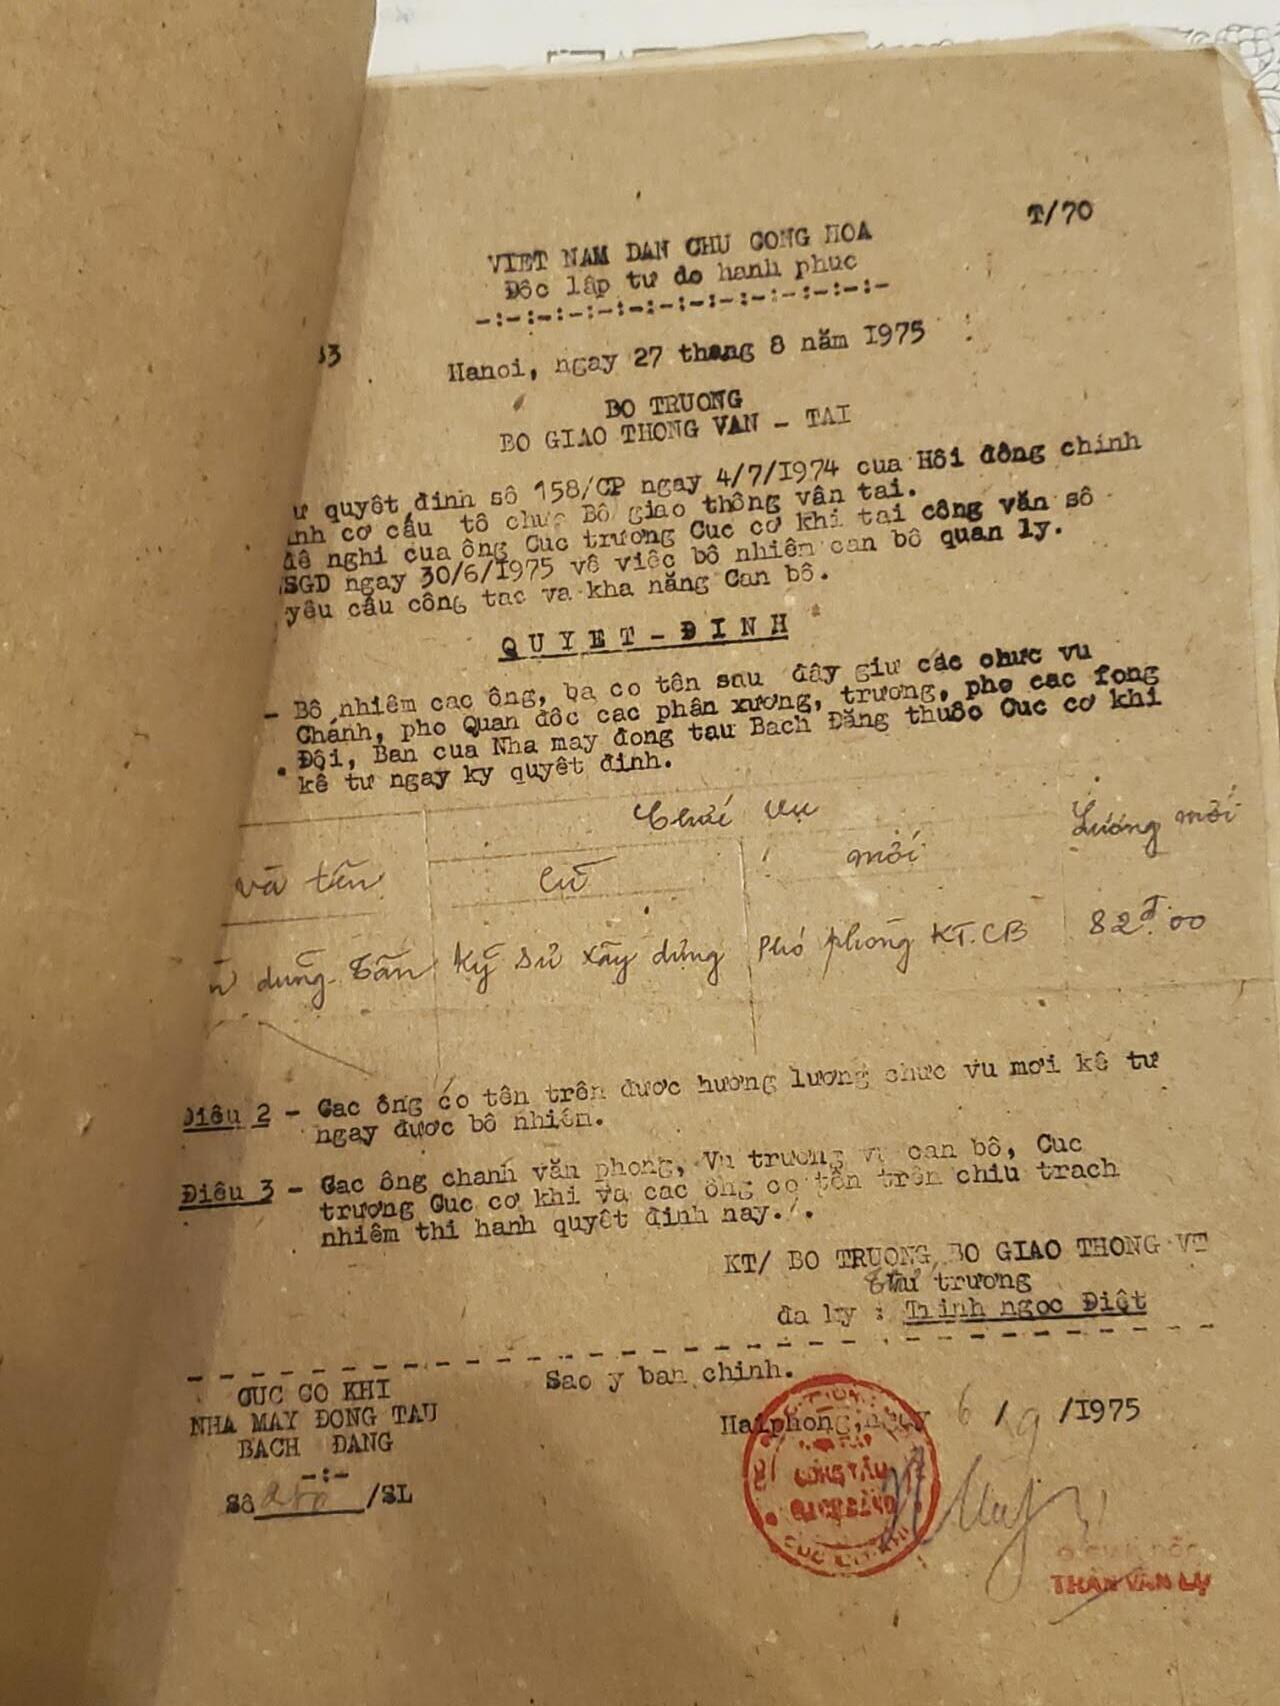 T/70
VIET NAM DAN CHU CONG HOA
Đôc lâp tư do hanh phuc
-:-:-:-:-:-:-:-:-:-:-:-:-:-
33
Hanoi, ngay 27 thang 8 năm I975
BO TRUONG
BO GIAO THONG VAN - TAI
ư quyêt đinh sô 158/CP ngay 4/7/I974 cua Hôi đông chinh
nh cơ câu tô chưc Bô giao thông vân tai.
đê nghi cua ông Cuc trương Cuc cơ khi tai công văn sô
SGD ngay 30/6/I975 vê viêc bô nhiên can bô quan ly.
yêu câu công tac va kha năng Can bô.
QUYET-ĐINH
- Bô nhiêm cac ông, ba co tên sau đây giư các chưc vu
Chánh, pho Quan đôc cac phân xương, trương, pho cac fong
Đôi, Ban cua Nha may đong tau Bach Đăng thuôc Cuc cơ khi
kê tư ngay ky quyêt đinh.
Chức vụ
Lương mới
và tên
cũ
mới
dung Tấn
Kỹ sư xây dựng
Phó phòng KT.CB
82đ.00
Điêu 2 - Cac ông co tên trên đươc hương lương chưc vu mơi kê tư
ngay đươc bô nhiên.
Điêu 3 - Cac ông chanh văn phong, Vu trương vu can bô, Cuc
trương Cuc cơ khi va cac ông co tên trên chiu trach
nhiêm thi hanh quyêt đinh nay./.
KT/ BO TRUONG BO GIAO THONG VT
Thư trương
đa ky : Trinh ngoc Điêt
Sao y ban chinh.
CUC CO KHI
NHA MAY ĐONG TAU
BACH ĐANG
-:-
Sô /SL
Haiphong, ngay 6/9/I975
ĐÓNG TÀU
BẠCH ĐẰNG
CỤC CƠ KHÍ
THÂN VĂN LỰ